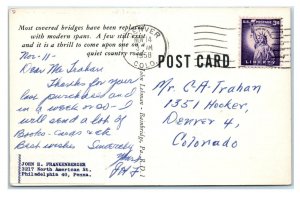 Most covered bridges have been replaced
with modern spans. A few still exist
and it is a thrill to come upon one on a
quiet country road.
Nov-11-
Dear Mr Trahan
Thanks for your
last purchased and
in a week or so - I
will send a lot of
Books - cards etc
Best wishes Sincerely
JOHN E. FRANKENBERGER
3217 North American St.
Philadelphia 40, Penna.
NOV 14
AM
1958
COLO.
U.S. POSTAGE
3¢
LIBERTY
POST CARD
Mr. C-A-Trahan
1351 Hooker,
Denver 4,
Colorado